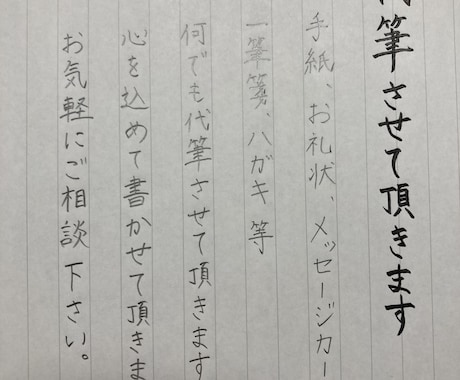 筆させて頂きます
手紙、お礼状、メッセージカー
一筆箋、ハガキ等
何でも代筆させて頂きます
心を込めて書かせて頂きま
お気軽にご相談下さい。